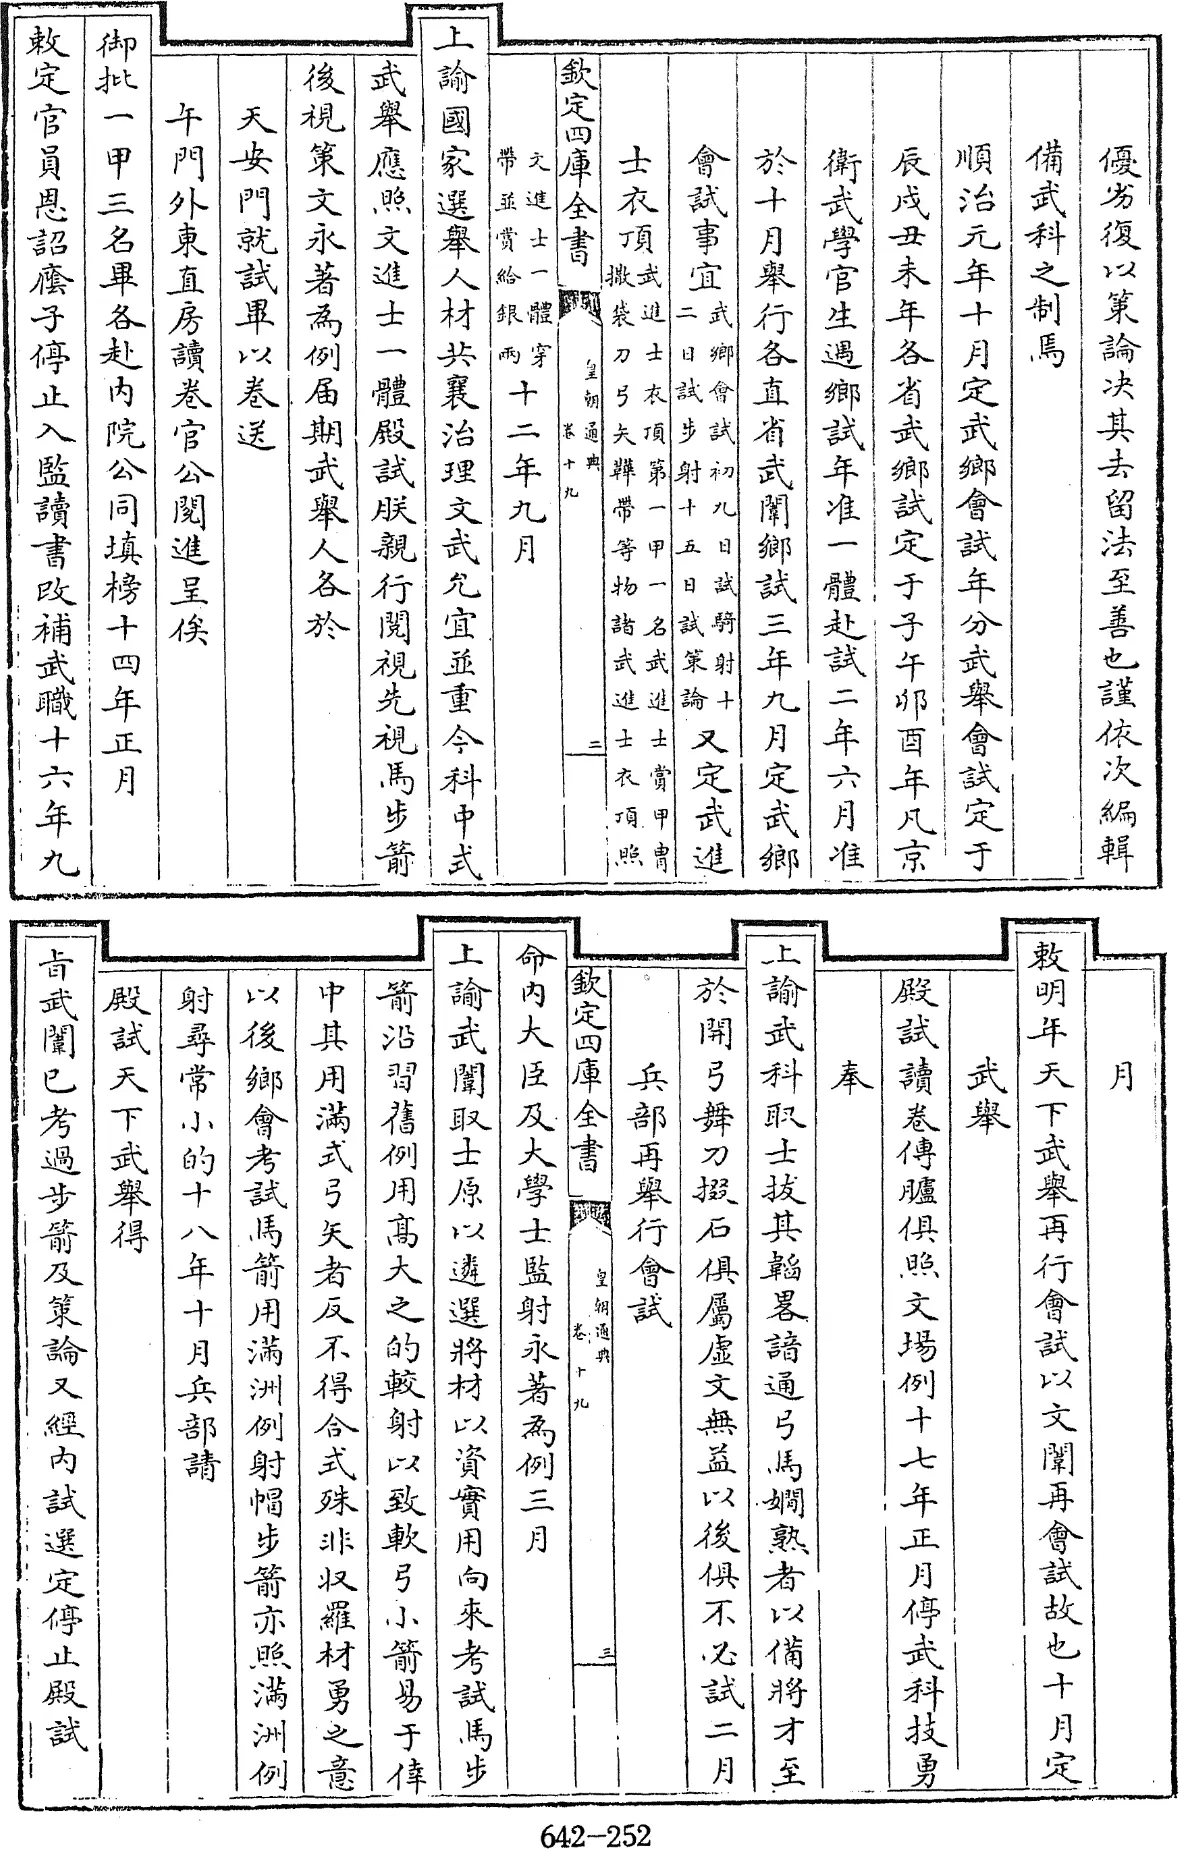 優劣復以策論决其去留法至善也謹依次編輯
備武科之制焉
順治元年十月定武鄉會試年分武舉會試定于
辰戌丑未年各省武鄉試定于子午卯酉年凡京
衛武學官生遇鄉試年准一體赴試二年六月准
於十月舉行各直省武闈鄉試三年九月定武鄉
會試事宜武鄉會試初九日試騎射十二日試步射十五日試策論又定武進
士衣頂武進士衣頂第一甲一名武進士賞甲胄撒袋刀弓矢鞾帶等物諸武進士衣頂照
欽定四庫全書 皇朝通典 卷十九 二
文進士一體穿帶並賞給銀兩十二年九月
上諭國家選舉人材共襄治理文武允宜並重今科中式
武舉應照文進士一體殿試朕親行閱視先視馬步箭
後視策文永著為例届期武舉人各於
天安門就試畢以卷送
午門外東直房讀卷官公閱進呈俟
御批一甲三名畢各赴内院公同填榜十四年正月
敕定官員恩詔廕子停止入監讀書改補武職十六年九
月
敕明年天下武舉再行會試以文闈再會試故也十月定
武舉
殿試讀卷傳臚俱照文場例十七年正月停武科技勇
奉
上諭武科取士拔其韜畧諳通弓馬嫻熟者以備將才至
於開弓舞刀掇石俱屬虚文無益以後俱不必試二月
兵部再舉行會試
欽定四庫全書 皇朝通典 卷十九 三
命内大臣及大學士監射永著為例三月
上諭武闈取士原以遴選將材以資實用向來考試馬步
箭沿習舊例用髙大之的較射以致軟弓小箭易于倖
中其用滿式弓矢者反不得合式殊非収羅材勇之意
以後鄉會考試馬箭用滿洲例射帽步箭亦照滿洲例
射尋常小的十八年十月兵部請
殿試天下武舉得
旨武闈已考過步箭及策論又經内試選定停止殿試
642-252